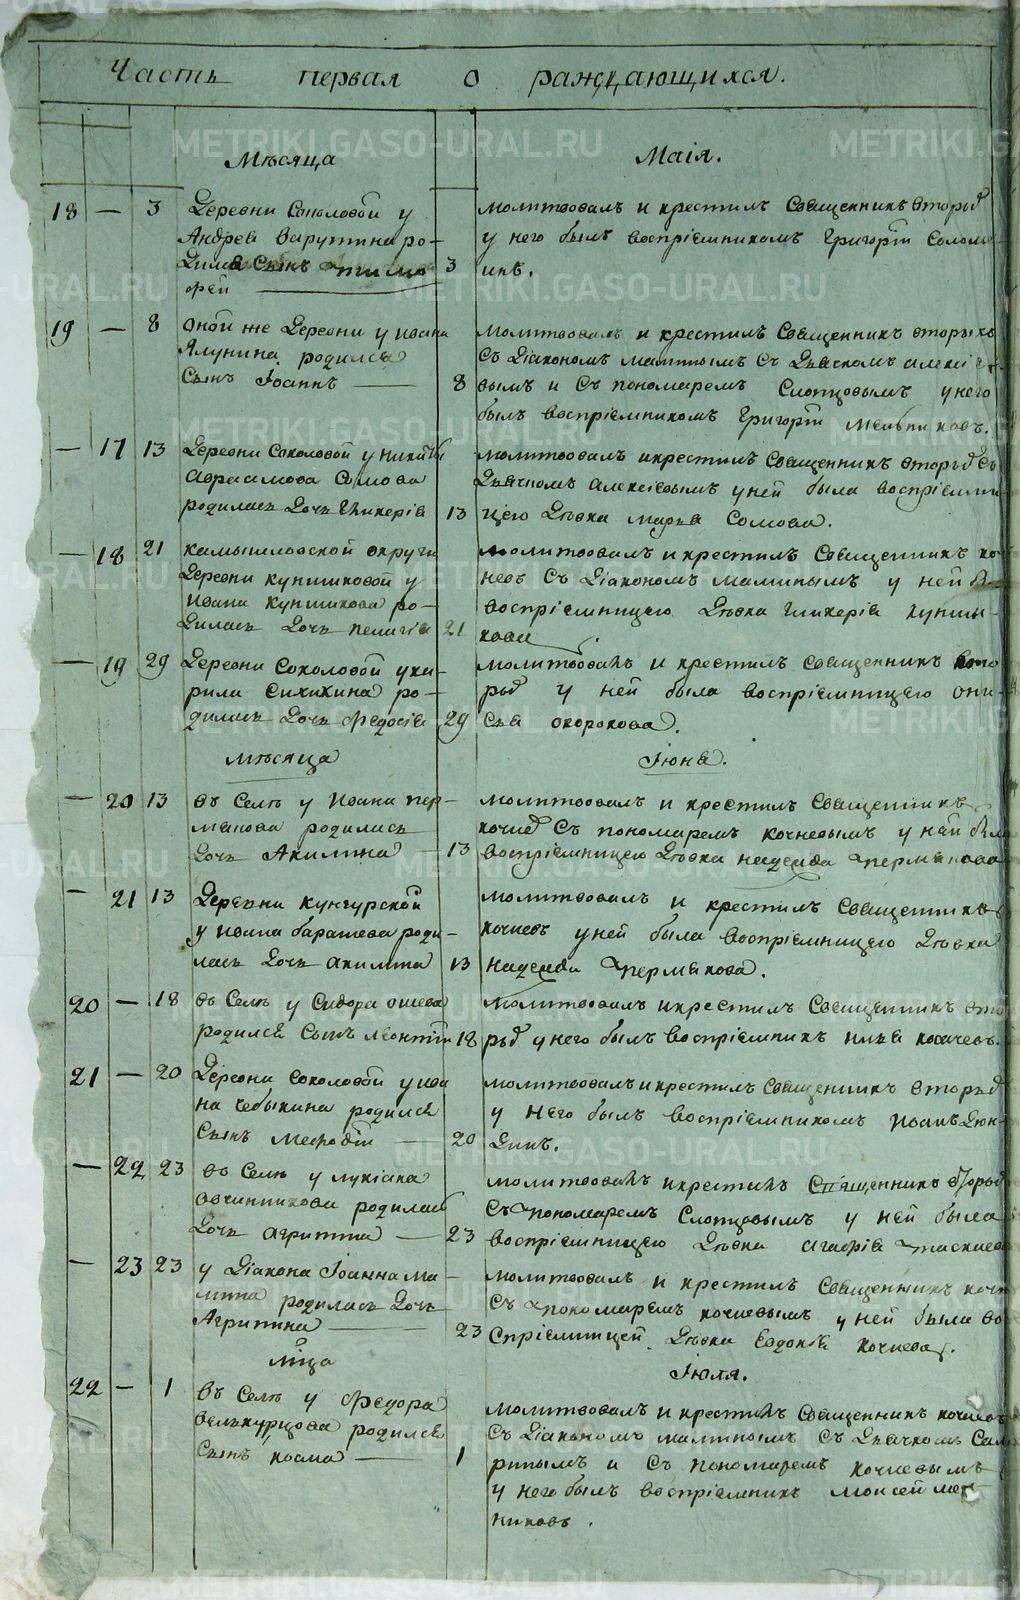 Часть первая о раждающихся.
Мѣсяца Маія.
18 — 3 Деревни Соколовой у
Андрея Варутина ро-
дился Сынъ Тимо
фей
3
молитвовалъ и крестилъ Священникъ вторый
у него былъ воспріемникомъ Григорій Соломе-
инъ.
19 — 8 оной же Деревни у ивана
Ялунина родился
Сынъ Іоаннъ
8
молитвовалъ и крестилъ Священникъ вторыхъ
Съ Діакономъ маминымъ Съ Дьячкомъ алексіе-
вымъ и Съ пономаремъ Слопцовымъ у него
былъ воспріемникомъ Григорій Мельниковъ.
— 17 13 Деревни Соколовой у никиты
авраамова Сомова
родилась Дочь Гликерія
13
молитвовалъ и крестилъ Священникъ вторый съ
Дьячкомъ алексіевымъ у ней была воспріемни-
цею Дѣвка марья Сомова.
— 18 21 камышловской округи
Деревни купшиковой у
ивана купшикова ро-
дилась Дочь пелагія
21
молитвовалъ и крестилъ Священникъ коч
невъ Съ Діакономъ маминымъ у ней
воспріемницею Дѣвка гликерія купши-
кова
— 19 29 Деревни Соколовой у ки-
рила Сихихина ро-
дилась Дочь Федосія
29
молитвовалъ и крестилъ Священникъ вто
рый у ней была воспріемницею они-
сья окорокова.
Мѣсяца Іюня.
— 20 13 въ Селѣ у Ивана пер-
мякова родилась
Дочь Акилина
13
молитвовалъ и крестилъ Священникъ
кочнев Съ пономаремъ кочневымъ у ней была
воспріемницею Дѣвка надежда пермякова
— 21 13 Деревни Кунгурской
у Ивана барашева роди-
лась Дочь акилина
13
молитвовалъ и крестилъ Священникъ
кочневъ у ней была воспріемницею Дѣвка
надежда пермякова.
20 — 18 въ Селѣ у Сидора ошева
родился Сынъ леонтій
18
молитвовалъ и крестилъ Священникъ вто
рый у него былъ воспріемникъ илья косачевъ.
21 — 20 Деревни Соколовой у ива
на чебыкина родился
Сынъ Мефодій
20
молитвовалъ и крестилъ Священникъ вторый
у него былъ воспріемникомъ Иоанъ Дюк-
динъ.
— 22 23 въ Селѣ у лукіана
овчинникова родилась
Дочь агрипина
23
молитвовалъ и крестилъ Священникъ вторый
Съ пономаремъ Слопцовымъ у ней была
воспріемницею Дѣвка агафія таскаева
— 23 23 у Діакона Іоанна ма-
мина родилась Дочь
Агрипина
23
молитвовалъ и крестилъ Священникъ кочн
Съ пономаремъ кочневымъ у ней была во
спріемницей Дѣвка Евдокія кочнева.
мца Іюля.
22 — 1 въ Селѣ у Федора
белькурцова родился
Сынъ косма
1
молитвовалъ и крестилъ Священникъ кочневъ
Съ Діакономъ маминымъ Съ Дьячкомъ
и Съ пономаремъ кочневымъ
у него былъ воспріемникъ моисей мел-
никовъ.